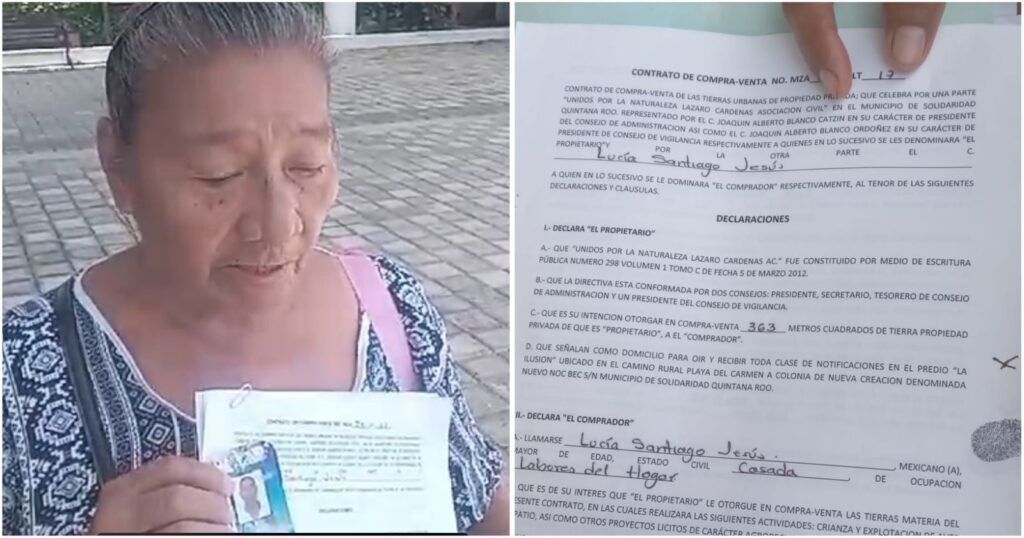 CONTRATO DE COMPRA-VENTA NO. MZA LT 17
CONTRATO DE COMPRA-VENTA DE LAS TIERRAS URBANAS DE PROPIEDAD QUE CELEBRA POR UNA PARTE
"UNIDOS POR LA NATURALEZA LAZARO CARDENAS ASOCIACION CIVIL" EN EL MUNICIPIO DE SOLIDARIDAD
QUINTANA ROO. REPRESENTADO POR EL C. JOAQUIN ALBERTO BLANCO CATZIN EN SU CARÁCTER DE PRESIDENTE
DEL CONSEJO DE ADMINISTRACION ASI COMO EL C. JOAQUIN ALBERTO BLANCO ORDOÑEZ EN SU CARÁCTER DE
PRESIDENTE DE CONSEJO DE VIGILANCIA RESPECTIVAMENTE A QUIENES EN LO SUCESIVO SE LES DENOMINARA "EL
PROPIETARIO"Y POR LA OTRA PARTE EL C.
Lucía Santiago Jesús
A QUIEN EN LO SUCESIVO SE LE DOMINARA "EL COMPRADOR" RESPECTIVAMENTE, AL TENOR DE LAS SIGUIENTES
DECLARACIONES Y CLAUSULAS.
DECLARACIONES
I.- DECLARA "EL PROPIETARIO"
A.- QUE "UNIDOS POR LA NATURALEZA LAZARO CARDENAS AC." FUE CONSTITUIDO POR MEDIO DE ESCRITURA
PÚBLICA NUMERO 298 VOLUMEN 1 TOMO C DE FECHA 5 DE MARZO 2012.
B.- QUE LA DIRECTIVA ESTA CONFORMADA POR DOS CONSEJOS: PRESIDENTE, SECRETARIO, TESORERO DE CONSEJO
DE ADMINISTRACION Y UN PRESIDENTE DEL CONSEJO DE VIGILANCIA.
C.- QUE ES SU INTENCION OTORGAR EN COMPRA-VENTA 363 METROS CUADRADOS DE TIERRA PROPIEDAD
PRIVADA DE QUE ES "PROPIETARIO", A EL "COMPRADOR".
D. QUE SEÑALAN COMO DOMICILIO PARA OIR Y RECIBIR TODA CLASE DE NOTIFICACIONES EN EL PREDIO "LA
ILUSION" UBICADO EN EL CAMINO RURAL PLAYA DEL CARMEN A COLONIA DE NUEVA CREACION DENOMINADA
NUEVO NOC BEC S/N MUNICIPIO DE SOLIDARIDAD QUINTANA ROO.
II.- DECLARA "EL COMPRADOR"
A.- LLAMARSE Lucía Santiago Jesús. , MEXICANO (A),
MAYOR DE EDAD, ESTADO CIVIL Casada , DE OCUPACION
Labores del Hogar
QUE ES DE SU INTERES QUE "EL PROPIETARIO" LE OTORGUE EN COMPRA-VENTA LAS TIERRAS MATERIA DEL
PRESENTE CONTRATO, EN LAS CUALES REALIZARA LAS SIGUIENTES ACTIVIDADES: CRIANZA Y EXPLOTACION DE AVES
PATIO, ASI COMO OTROS PROYECTOS LICITOS DE CARÁCTER